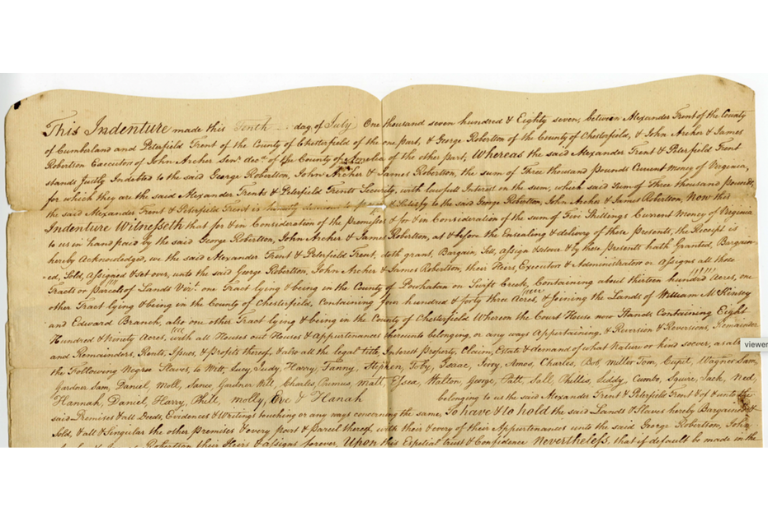 This Indenture made this Tenth day of July One thousand seven hundred & Eighty seven, between Alexander Trent of the County
of Cumberland and Peterfield Trent of the County of Chesterfield of the one part, & George Robertson of the County of Chesterfield, & John Archer & James
Robertson Executors of John Archer Senr. decd. of the County of Amelia of the other part, Whereas the said Alexander Trent & Peterfield Trent
stands Justly Indebted to the said George Robertson, John Archer & James Robertson, the sum of Three thousand pounds Current money of Virginia,
for which they are the said Alexander Trents & Peterfield Trents Security, with lawfull Interest on the sum, which said Sum of Three thousand pounds,
the said Alexander Trent & Peterfield Trent is to the said George Robertson, John Archer & James Robertson, Now this
Indenture Witnesseth that for & in Consideration of the premises & for & in Consideration of the sum of Five Shillings Current money of Virginia
to us in hand paid by the said George Robertson, John Archer & James Robertson, at & before the Ensealing & delivery of these presents, the Receipt is
hereby Acknowledged, we the said Alexander Trent & Peterfield Trent, doth grant, Bargain, Sell, assign & by these presents hath Granted, Bargain-
ed, Sold, Assigned & set over, unto the said George Robertson, John Archer & James Robertson, their Heirs, Executors & Administrators or Assigns all those
Tracts or parcels of Lands Vizt. one Tract lying & being in the County of Powhatan on Swift Creek, Containing about thirteen hundred Acres, one
other Tract lying & being in the County of Chesterfield, Containing four hundred & forty three Acres, & Joining the Lands of William McKinsey
and Edward Branch, also one other Tract lying & being in the County of Chesterfield Whereon the Court House now Stands Containing Eight
Hundred & Ninety Acres, with all Houses out Houses & Appurtenances thereunto belonging, or any ways Appertaining, & Reversion & Reversions, Remainder
and Remainders, Rents, Issues, & profits thereof, & also all the legal title Interest property, Claim, Estate & demand of what Nature or kind soever, as also
the Following Negroe Slaves, to Witt, Sucy, Judy, Harry, Fanny, Stephen, Toby, Isaac, Terry, Amos, Charles, Bob, miller Tom, Cupit, Wagoner Sam,
Gardon Sam, Daniel, Moll, James, Gardner Will, Charles, Primus, Matt, Walton, George, Patt, Sall, Phillis, Liddy, Squire, Jack, Ned,
Hannah, Daniel, Harry, Phill, Molly, Eve & Hanah belonging to us the said Alexander Trent & Peterfield Trent & of & unto the
said Premises & all Deeds, Evidences & Writings touching or any ways concerning the same, To have & to hold the said Lands & Slaves hereby Bargained &
Sold, & all & Singular the other Premises & every part & parcel thereof, with their & every of their Appurtenances unto the said George Robertson, John
Robertson their Heirs & assigns forever. Upon this Especial trust & Confidence Nevertheless, that if default be made in the
viewer